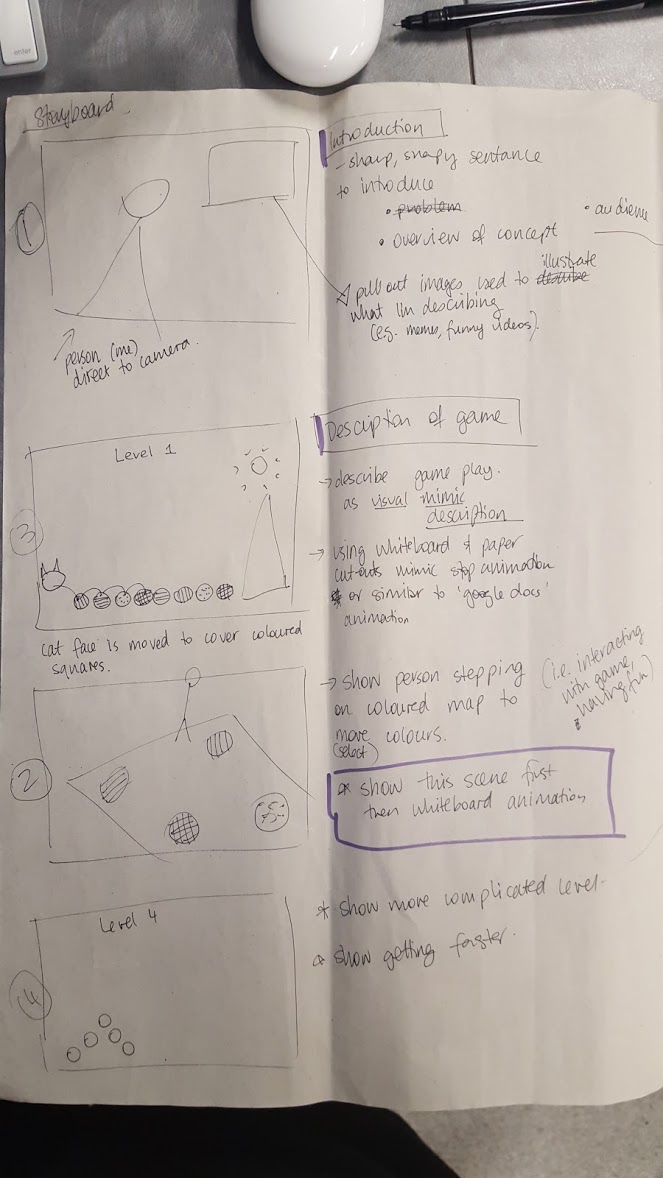 enter
Storyboard
1
person (me)
direct to camera.
Introduction
- sharp, snapy sentance
to introduce
• problem
• audience
• overview of concept
pull out images used to describe illustrate
what I'm describing
(e.g. memes, funny videos).
3
Level 1
cat face is moved to cover coloured
squares.
Desciption of game
→ describe game play.
as visual mimic
description
→ using whiteboard & paper
cut-outs mimic stop animation
* or similar to 'google docs'
animation
2
→ show person stepping
on coloured map to
move colours.
(select)
(i.e. interacting
with game,
having fun)
* show this scene first
then whiteboard animation
4
Level 4
* show more complicated level.
* show getting faster.